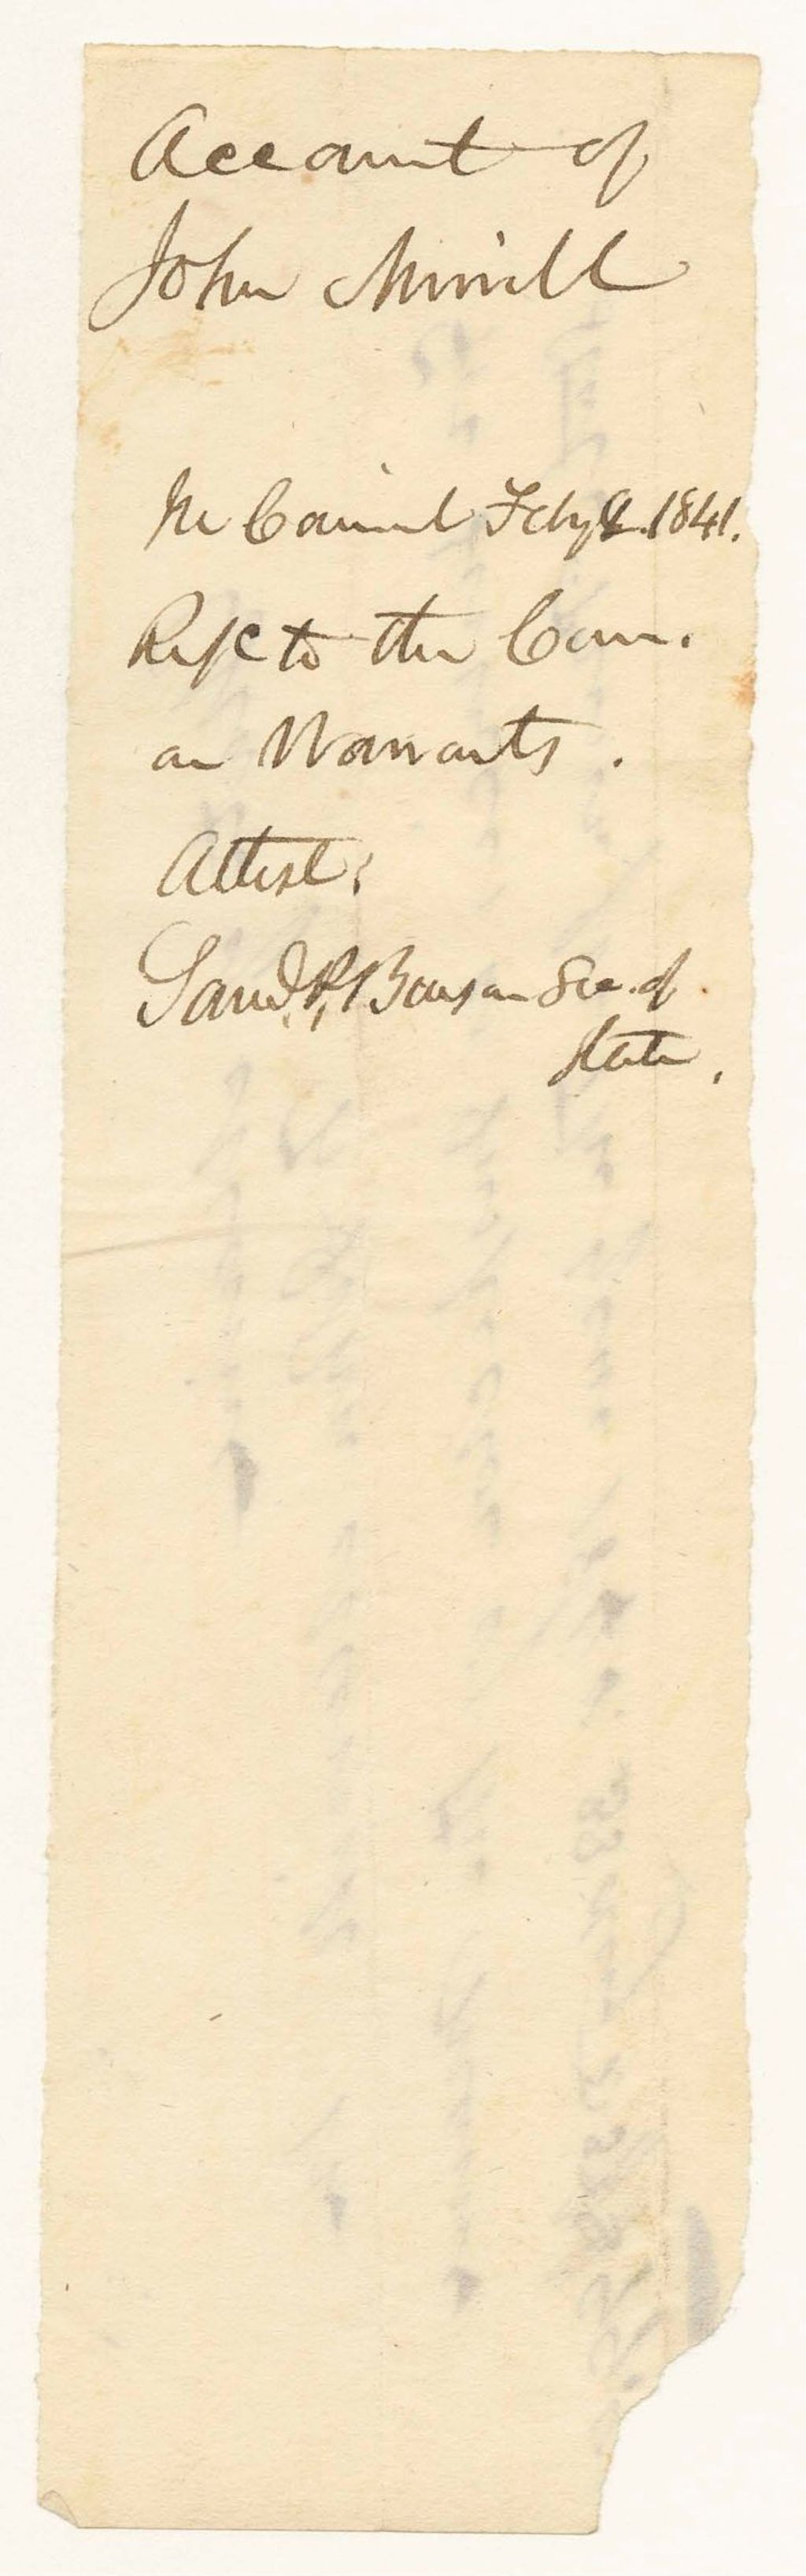 Account of
John Merrill
In Council Feby 8. 1841.
Refd to the Com.
on Warrants.
Attest:
Saml. P. Benson Sec. of
State.